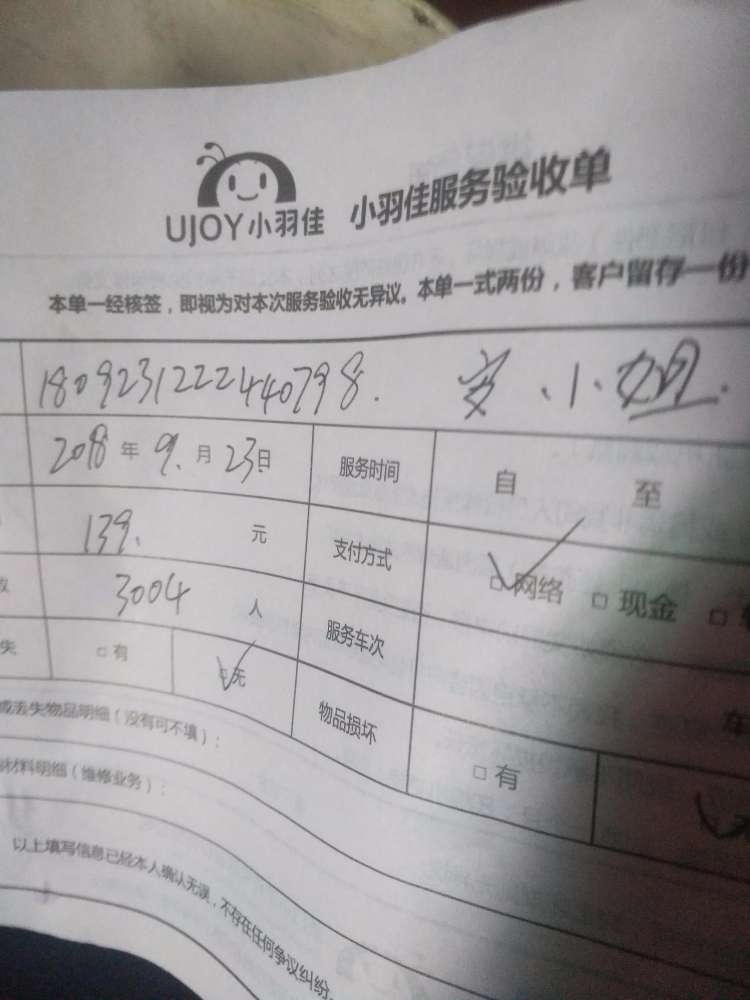 UJOY小羽佳 小羽佳服务验收单
本单一经核签，即视为对本次服务验收无异议。本单一式两份，客户留存一份
180923122240798. 安小姐.
2018年9月23日 服务时间 自 至
139. 元 支付方式 □网络 □现金 □
3004 人 服务车次 车
失 □有 □无 物品损坏 □有
或丢失物品明细（没有可不填）：
材料明细（维修业务）：
以上填写信息已经本人确认无误，不存在任何争议纠纷。